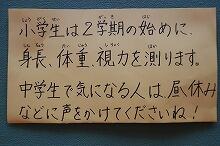 小学生は2学期の始めに、
身長、体重、視力を測ります。
中学生で気になる人は、昼休み
などに声をかけてくださいね!